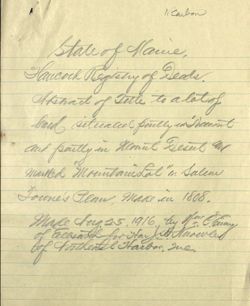 1 Carbon
State of Maine,
Hancock Registry of Deeds.
Abstract of Title to a lot of
land situated partly in Tremont
and partly in Mount Desert and
marked "Mountain Lot" on Salem
Towne's Plan made in 1808.
Made Aug 25, 1916, by Wm O. Emery
of Ellsworth for Hon J.
of Northeast Harbor, Me.